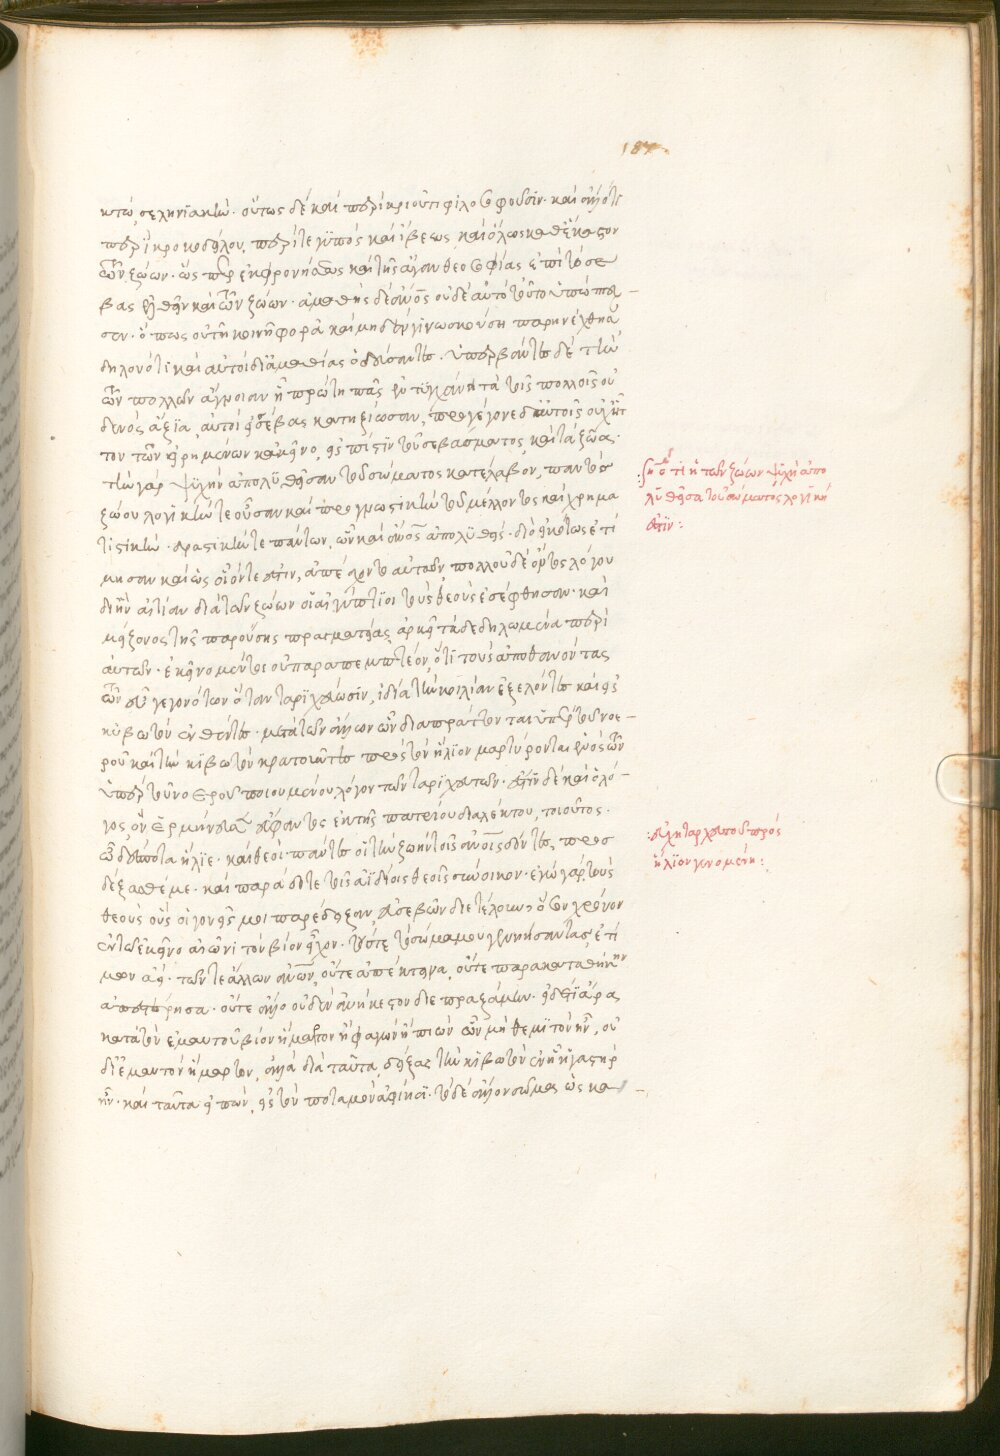 κτὼ σεληνϊακὼ. οὕτως δέ καὶ περὶ κριοῦτι φιλοσοφοῦσϊν. καὶ ἄλλό τι
περὶ κροκοδήλου, περίτε γϋπός καὶ ἴβεως, καὶ ὅλως καθ' ἕκαστον
τῶν ζώων. ὥσπερ ἐκφρονήσεως καὶ τῆς ἄγαν θεοσοφίας ἐπὶ τὸ σέ
βας ἐλθεῖν καὶ τῶν ζώων. ἀμαθὴς δέ ἄνος οὐδὲ αὐτὸ τοῦτο ὑπώπτευ -
σεν. ὅπως οὐ τῆ κοινῆ φορᾶ καὶ μηδὲν γϊνωσκούση παρηνέχθησαν
δηλονότι καὶ αὐτοὶ δϊ ἀμαθίας ὁδεύσαντες. ὑπερβάντες δὲ τὴν
τῶν πολλῶν ἄγνοιαν ἧ πρώτη πᾶς ἐντϋγχάνει τὰ τοῖς πολλοῖς οὐ
δενός ἄξια, αὐτοὶ εἰς σέβας κατηξίωσαν, προσγέγονε δ' αὐτοῖς οὐχ ἧτ
τον τῶν εἰρημένων κἀκεῖνο, εἰς πίστϊν τοῦ σεβάσματος, καὶ τὰ ζῶα.
τὴν γὰρ ψϋχὴν ἀπολϋθεῖσαν τοῦ σώματος κατέλαβον, παντὸς
ζώου λογϊκήν τε οὖσαν καὶ προγνωστικὴν τοῦ μέλλοντος καὶ χρημα
τιστικὴν. δραστικήν τε πάντων, ὧν καὶ ἄνος ἀπολϋθείς. διὸ εἰκότως ἐτί
μησαν καὶ ὡς οἷόντε ἐστιν, ἀπέσχοντο αὐτῶν. πολλοῦ δέ ὄντος λόγου
δι' ἣν αἰτίαν διὰ τῶν ζώων οἱ αἰγϋπτϊοι τοὺς θεοὺς ἐσέφθησαν. καὶ
μείζονος τῆς παρούσης πραγματείας, ἀρκεῖ τὰ δεδηλωμένα περὶ
αὐτῶν. ἐκεῖνο μέντοι οὐ παραπεμπτέον, ὅτι τοὺς ἀποθανόντας
τῶν εὖ γεγονότων ὅταν ταρϊχεύωσϊν, ἰδία τὴν κοιλίαν ἐξελόντες καὶ εἰς
κϊβωτὸν ἐνθέντες. μετὰ τῶν ἄλλων ὧν διαπράττονται ὑπὲρ τοῦ νοε -
ροῦ καὶ τὴν κϊβωτὸν κρατοῦντες πρὸς τὸν ἥλϊον μαρτϋρονται ἑνὸς τῶν
ὑπὲρ τοῦ νοεροῦ ποιουμένου λόγον τῶν ταρϊχευτῶν. ἐστϊν δὲ καὶ ὁ λό -
γος, ὃν ἑρμήνευσεν εὔφαντος ἐκ τῆς πατρίου διαλέκτου, τοιοῦτος.
ὦ δέσποτα ἥλϊε. καὶ θεοὶ πάντες οἱ τὴν ζωὴν τοῖς ἀνοις δόντες, προσ
δέξασθέ με. καὶ παράδοτε τοῖς ἀϊδίοις θεοῖς σύνοικον. ἐγὼ γὰρ τοὺς
θεοὺς οὓς οἱ γονεῖς μοι παρέδειξαν, εὐσεβῶν διετέλουν ὅσον χρόνον
ἐν τῶ ἐκείνω αἰῶνι τὸν βίον εἶχον. τούς τε τὸ σῶμα μου γεννήσαντας, ἐτί
μων ἀεί. τῶν τε ἄλλων ἀνων, οὔτε ἀπέκτεινα, οὔτε παρακαταθήκην
ἀπεστέρησα. οὔτε ἄλλο οὐδὲν ἀνήκεστον διεπραξάμην. εἰ δέ τϊ ἄρα
κατὰ τὸν ἐμαυτοῦ βίον ἥμαρτον ἢ φαγὼν ἢ πιὼν ὧν μὴ θεμϊτὸν ἦν, οὐ
δϊ' ἐμαυτὸν ἥμαρτον, ἀλλὰ διὰ ταῦτα, δείξας τὴν κϊβωτὸν ἐν ἧ ἡ γαστὴρ
ἦν. καὶ ταῦτα εἰπὼν, εἰς τὸν ποταμὸν ἀφίησϊ. τὸ δέ ἄλλον σῶμα, ὡς κα -
ὅτι ἡ τῶν ζώων ψϋχὴ ἀπο
λϋθεῖσα τοῦ σώματος λογϊκή
ἐστϊν:
:εὐχὴ ταρχευτοῦ πρός
ἥλϊον γινομένη:
187